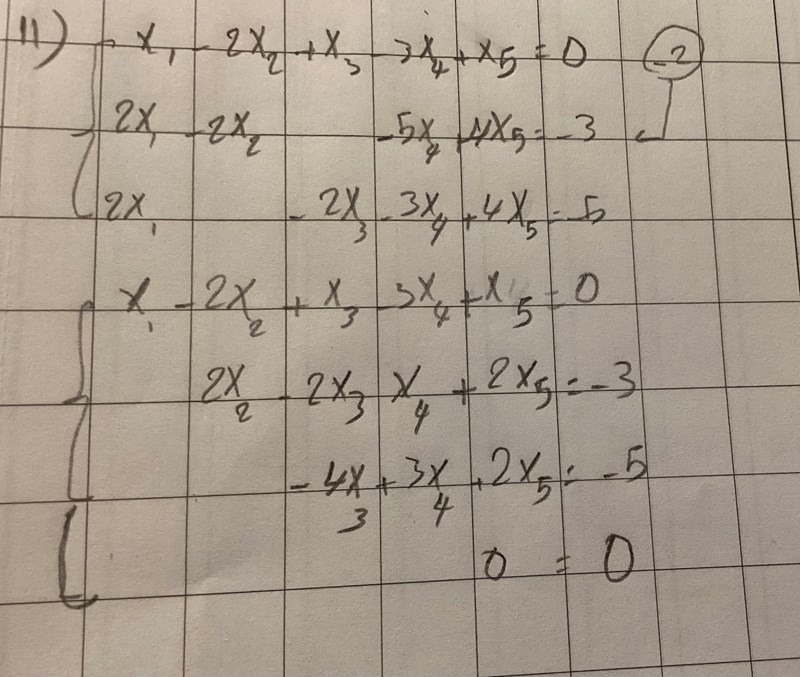 11) x₁ - 2x₂ + x₃ - 3x₄ + x₅ = 0 -2
2x₁ - 2x₂ - 5x₄ + 4x₅ = -3
2x₁ - 2x₃ - 3x₄ + 4x₅ = -5
x₁ - 2x₂ + x₃ - 3x₄ + x₅ = 0
2x₂ - 2x₃ x₄ + 2x₅ = -3
- 4x₃ + 3x₄ + 2x₅ = -5
0 = 0